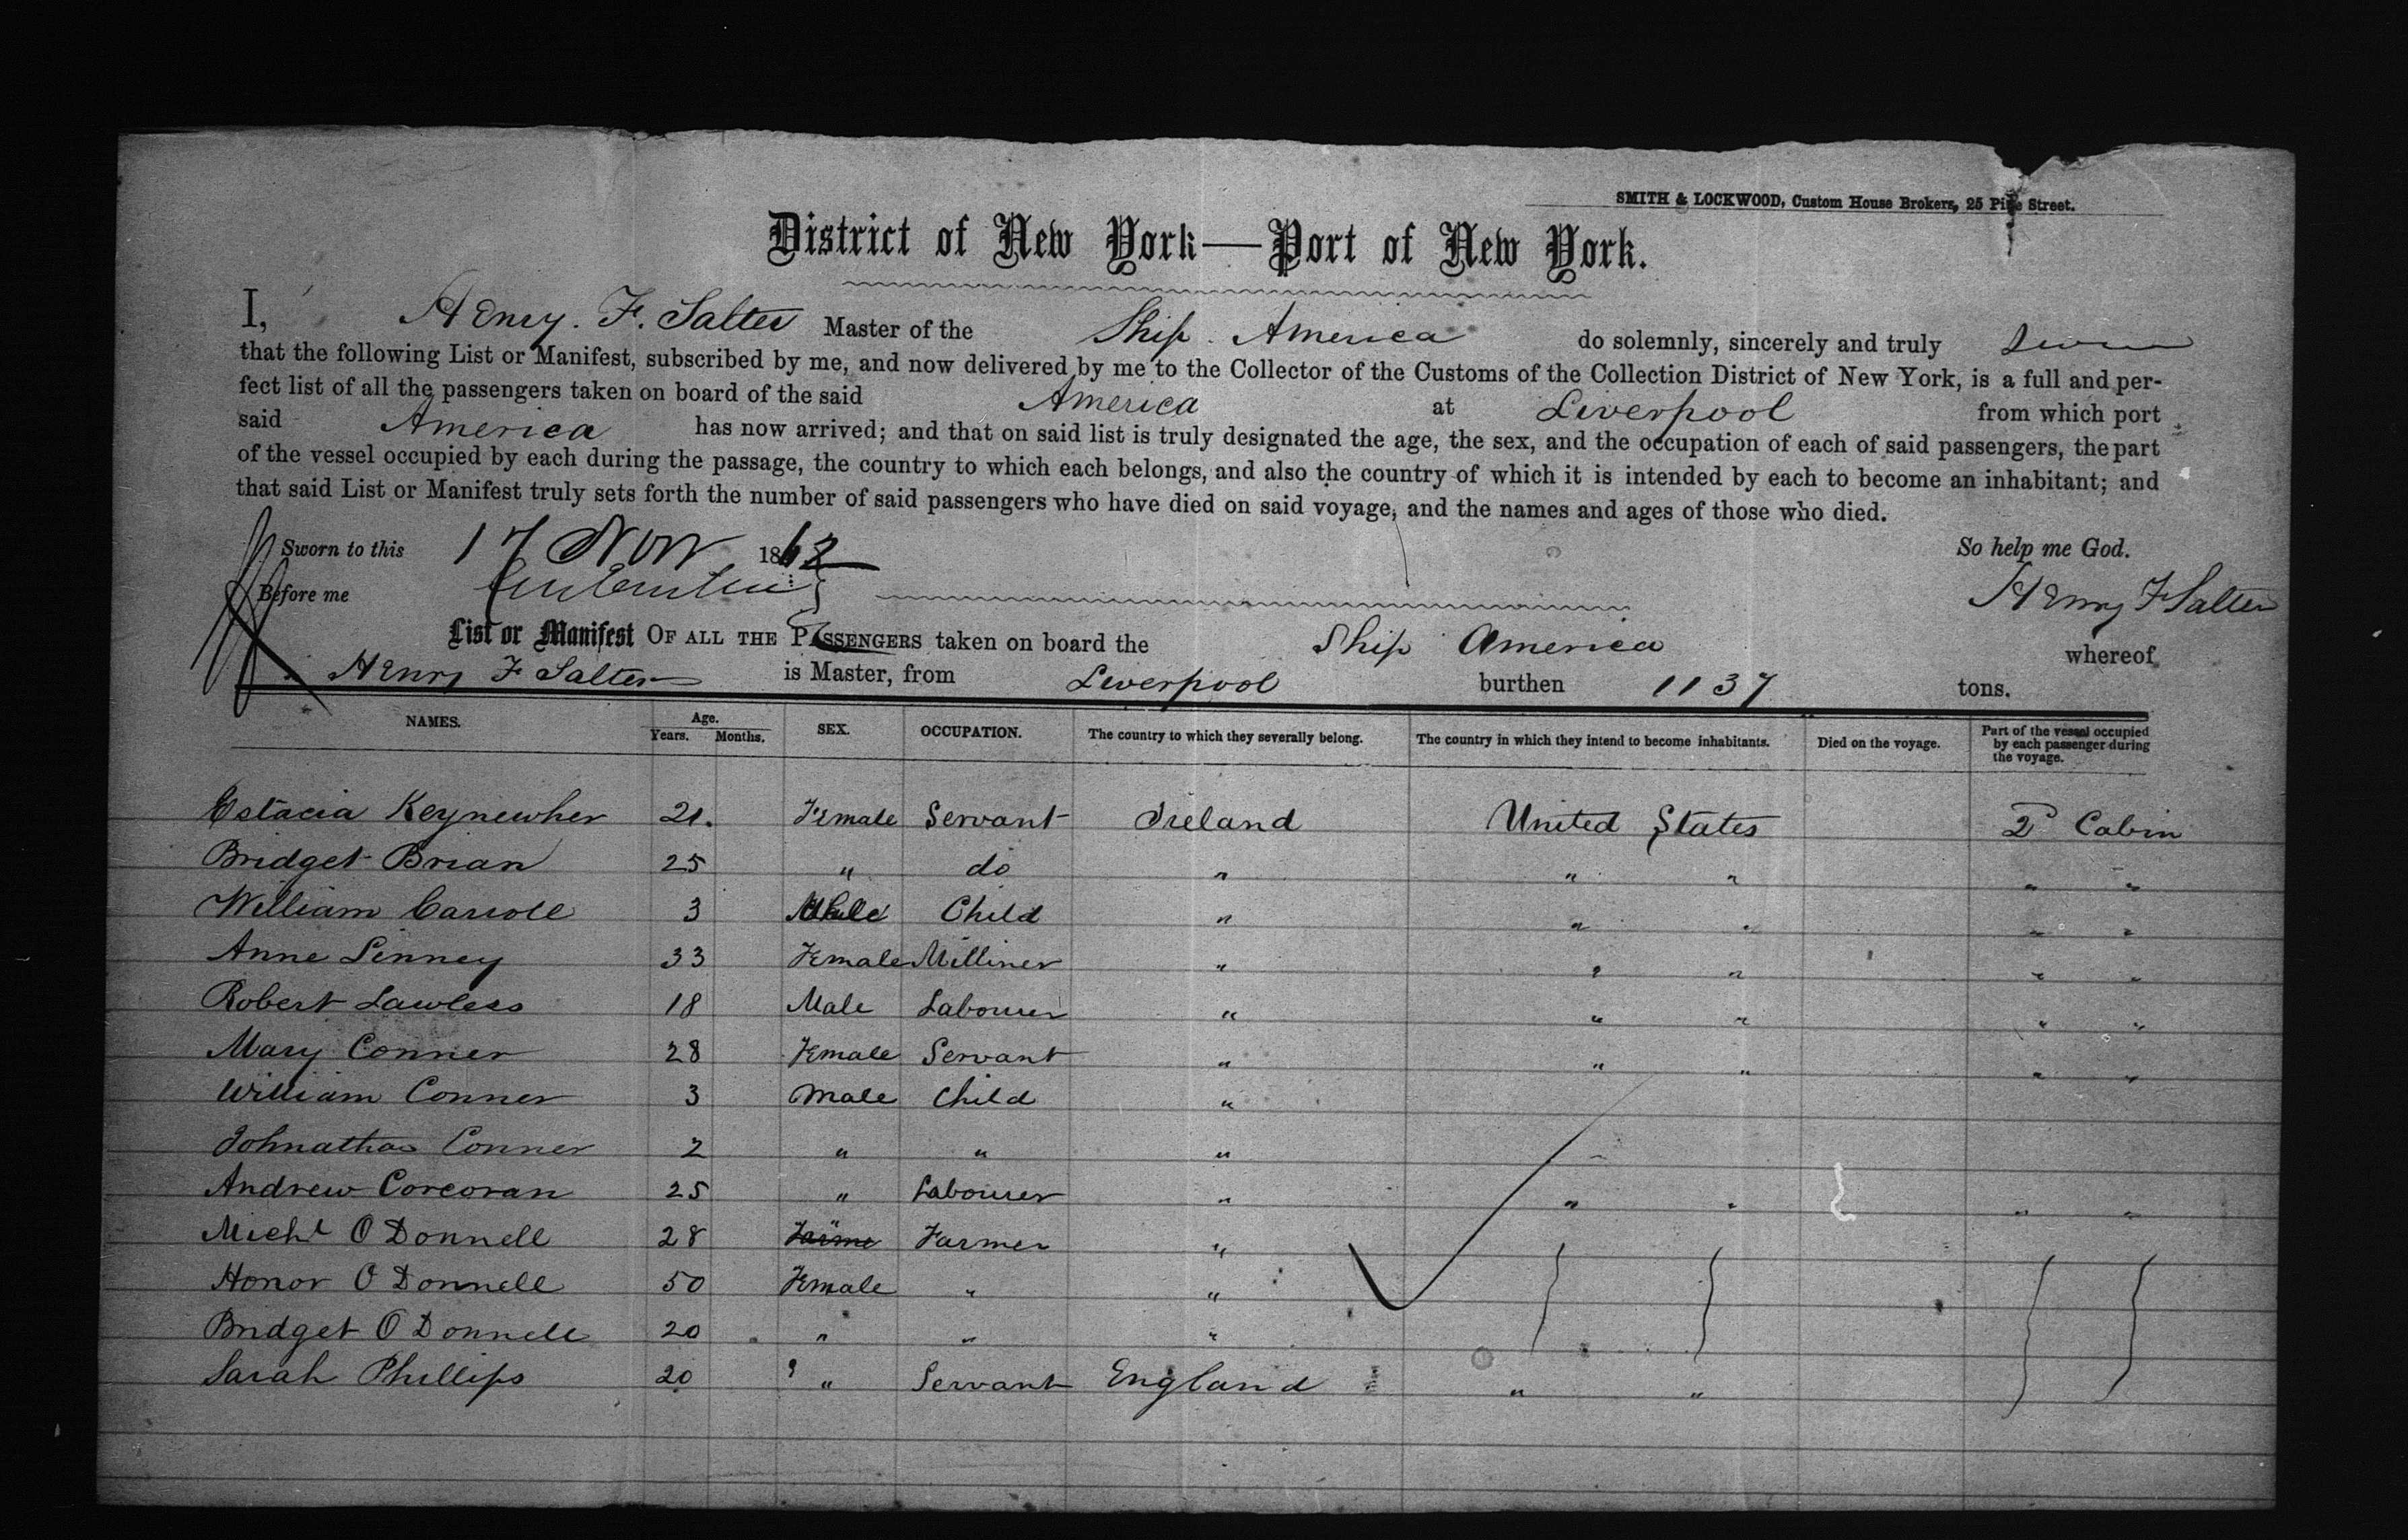 SMITH & LOCKWOOD, Custom House Brokers, 25 Pine Street.
District of New York—Port of New York.
I, Henry. F. Salter Master of the Ship. America do solemnly, sincerely and truly
that the following List or Manifest, subscribed by me, and now delivered by me to the Collector of the Customs of the Collection District of New York, is a full and per-
fect list of all the passengers taken on board of the said America at Liverpool from which port
said America has now arrived; and that on said list is truly designated the age, the sex, and the occupation of each of said passengers, the part
of the vessel occupied by each during the passage, the country to which each belongs, and also the country of which it is intended by each to become an inhabitant; and
that said List or Manifest truly sets forth the number of said passengers who have died on said voyage, and the names and ages of those who died.
Sworn to this 17 Nov 1862 So help me God.
Before me Henry F Salter
List or Manifest OF ALL THE PASSENGERS taken on board the Ship America whereof
Henry F Salter is Master, from Liverpool burthen 1137 tons.
NAMES. Age. Years. Months. SEX. OCCUPATION. The country to which they severally belong. The country in which they intend to become inhabitants. Died on the voyage. Part of the vessel occupied by each passenger during the voyage.
Estacia Keynewher 21. Female Servant Ireland United States 2d Cabin
Bridget Brian 25 " do " " " " "
William Carrole 3 Male Child " " " " "
Anne Linney 33 Female Milliner " " " " "
Robert Lawless 18 Male Labourer " " " " "
Mary Conner 28 Female Servant " " " " "
William Conner 3 Male Child "
Conner 2 " " "
Andrew Corcoran 25 " Labourer " " " " "
Michl O Donnell 28 " Farmer "
Honor O Donnell 50 Female " "
Bridget O Donnell 20 " " "
Sarah Phillips 20 " Servant England " "